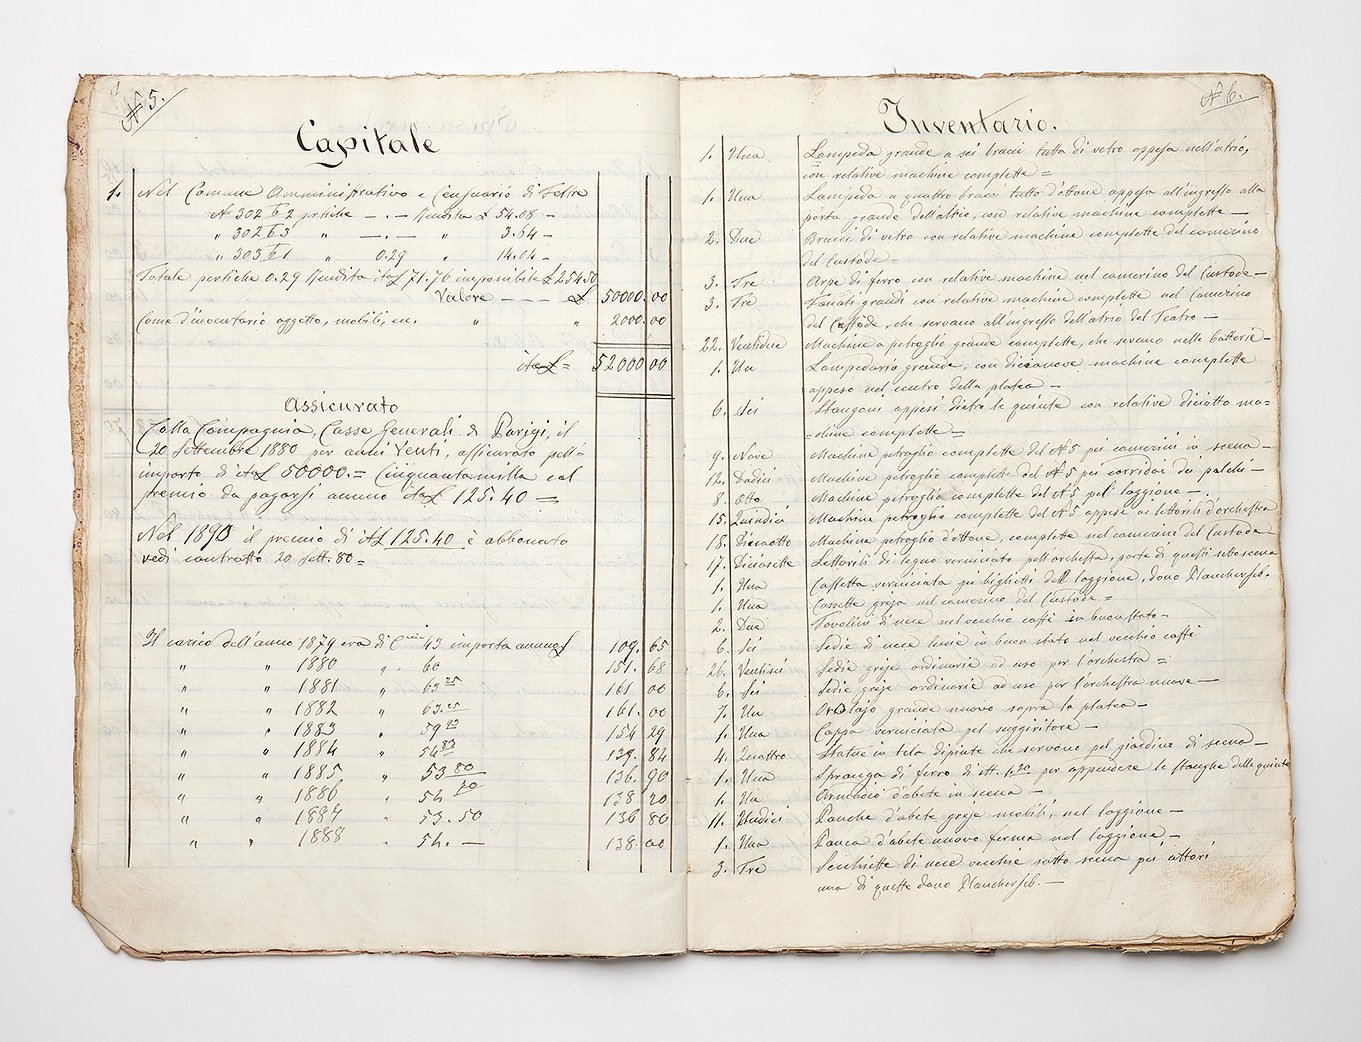 № 5.
Capitale
1. Nel Comune Amministrativo e Censuario di Sesta
N 302 2 pertiche — . — Rendita £ 54.08 —
" 302 3 " — . — " 3.64 —
" 303 1 " 0.29 " 14.04 —
Totale pertiche 0.29 Rendita ita£ 71.76 imponibile £ 254.50
Valore — — — £ 50000.00
Come d'inventario oggetto, mobili, ecc. " " 2000.00
ita£ = 52000 00
Assicurato
Colla Compagnia, Casse Generali di Parigi, il
20 Settembre 1880 per anni Venti, assicurato pell'
importo di ita£ 50000.= Cinquantamilla col
premio da pagarsi annuo ita£ 125.40 =
Nel 1890 il premio di it£ 125.40 è abbonato
vedi contratto 20 sett. 80=
Il carico dell'anno 1879 era di C 43 importa annuo£ 109.65
" " 1880 " 60 151.68
" " 1881 " 63 25 161 00
" " 1882 " 63.25 161.00
" " 1883 " 59 154 29
" " 1884 " 54 83 139.84
" " 1885 " 53 80 136.90
" " 1886 " 54 20 138 20
" " 1887 " 53.50 136 80
" " 1888 " 54. — 138.00
№ 6.
Inventario.
1. Una Lampeda grande a sei bracci tutta di vetro appesa nell'atrio,
con relative machine complette =
1. Una Lampeda a quattro bracci tutto d'ottone appesa all'ingresso alla
porta grande dell'atrio, con relative machine complette —
2. Due Bracci di vetro con relative machine complette del camerino
del Custode =
3. Tre Arpe di ferro con relative machine nel camerino del Custode —
3. Tre Fanali grandi con relative machine complette nel Camerino
del Custode, che servano all'ingresso dell'atrio del Teatro —
22. Ventidue Machine a petroglio grande complette, che sevano nelle batterie —
1. Un Lampedario grande, con dicianove machine complette
appeso nel centro della platea —
6. Sei Stangoni appesi dietro le quinte con relative diciotto ma=
=chine complette =
9. Nove Machine petroglio complette del № 5 pei camerini in scena —
12. Dodici Machine petroglio complette del № 5 pei corridoi dei palchi —
8. Otto Machine petroglio complette del № 5 pel loggione — .
15. Quindici Machine petroglio complette del № 5 appese ai lettorili d'orchestra
18. Dicciotto Machine petroglio d'ottone, complette nel camerino del Custode —
17. Diciasette Lettorili di legno verniciato pell'orchestra, parte di questi sottoscena
1. Una Cassetta verniciata pei biglietti del loggione, dono Plancherseb.
1. Una Cassette greja nel camerino del Custode =
2. Due Tavolini di noce nel vecchio caffè in buon stato —
6. Sei Sedie di noce in buon stato nel vecchio caffè
26. Ventisei Sedie greje ordinarie ad uso per l'orchestra =
6. Sei Sedie greje ordinarie ad uso per l'orchestra nuove —
1. Un Orolojo grande nuovo sopra la platea —
1. Una Cappa verniciata pel suggiritore —
4. Quattro Statue in tela dipinte che servono pel giardino di scena —
1. Una Spranga di ferro di M. 1.20 per appendere le stanghe delle quinte
1. Un Armadio d'abete in scena —
11. Undici Panche d'abete greje mobili, nel loggione —
1. Una Panca d'abete nuova ferma nel loggione —
3. Tre Secchiette di noce vecchie sotto scena pei attori
una di queste dono Plancherseb. —